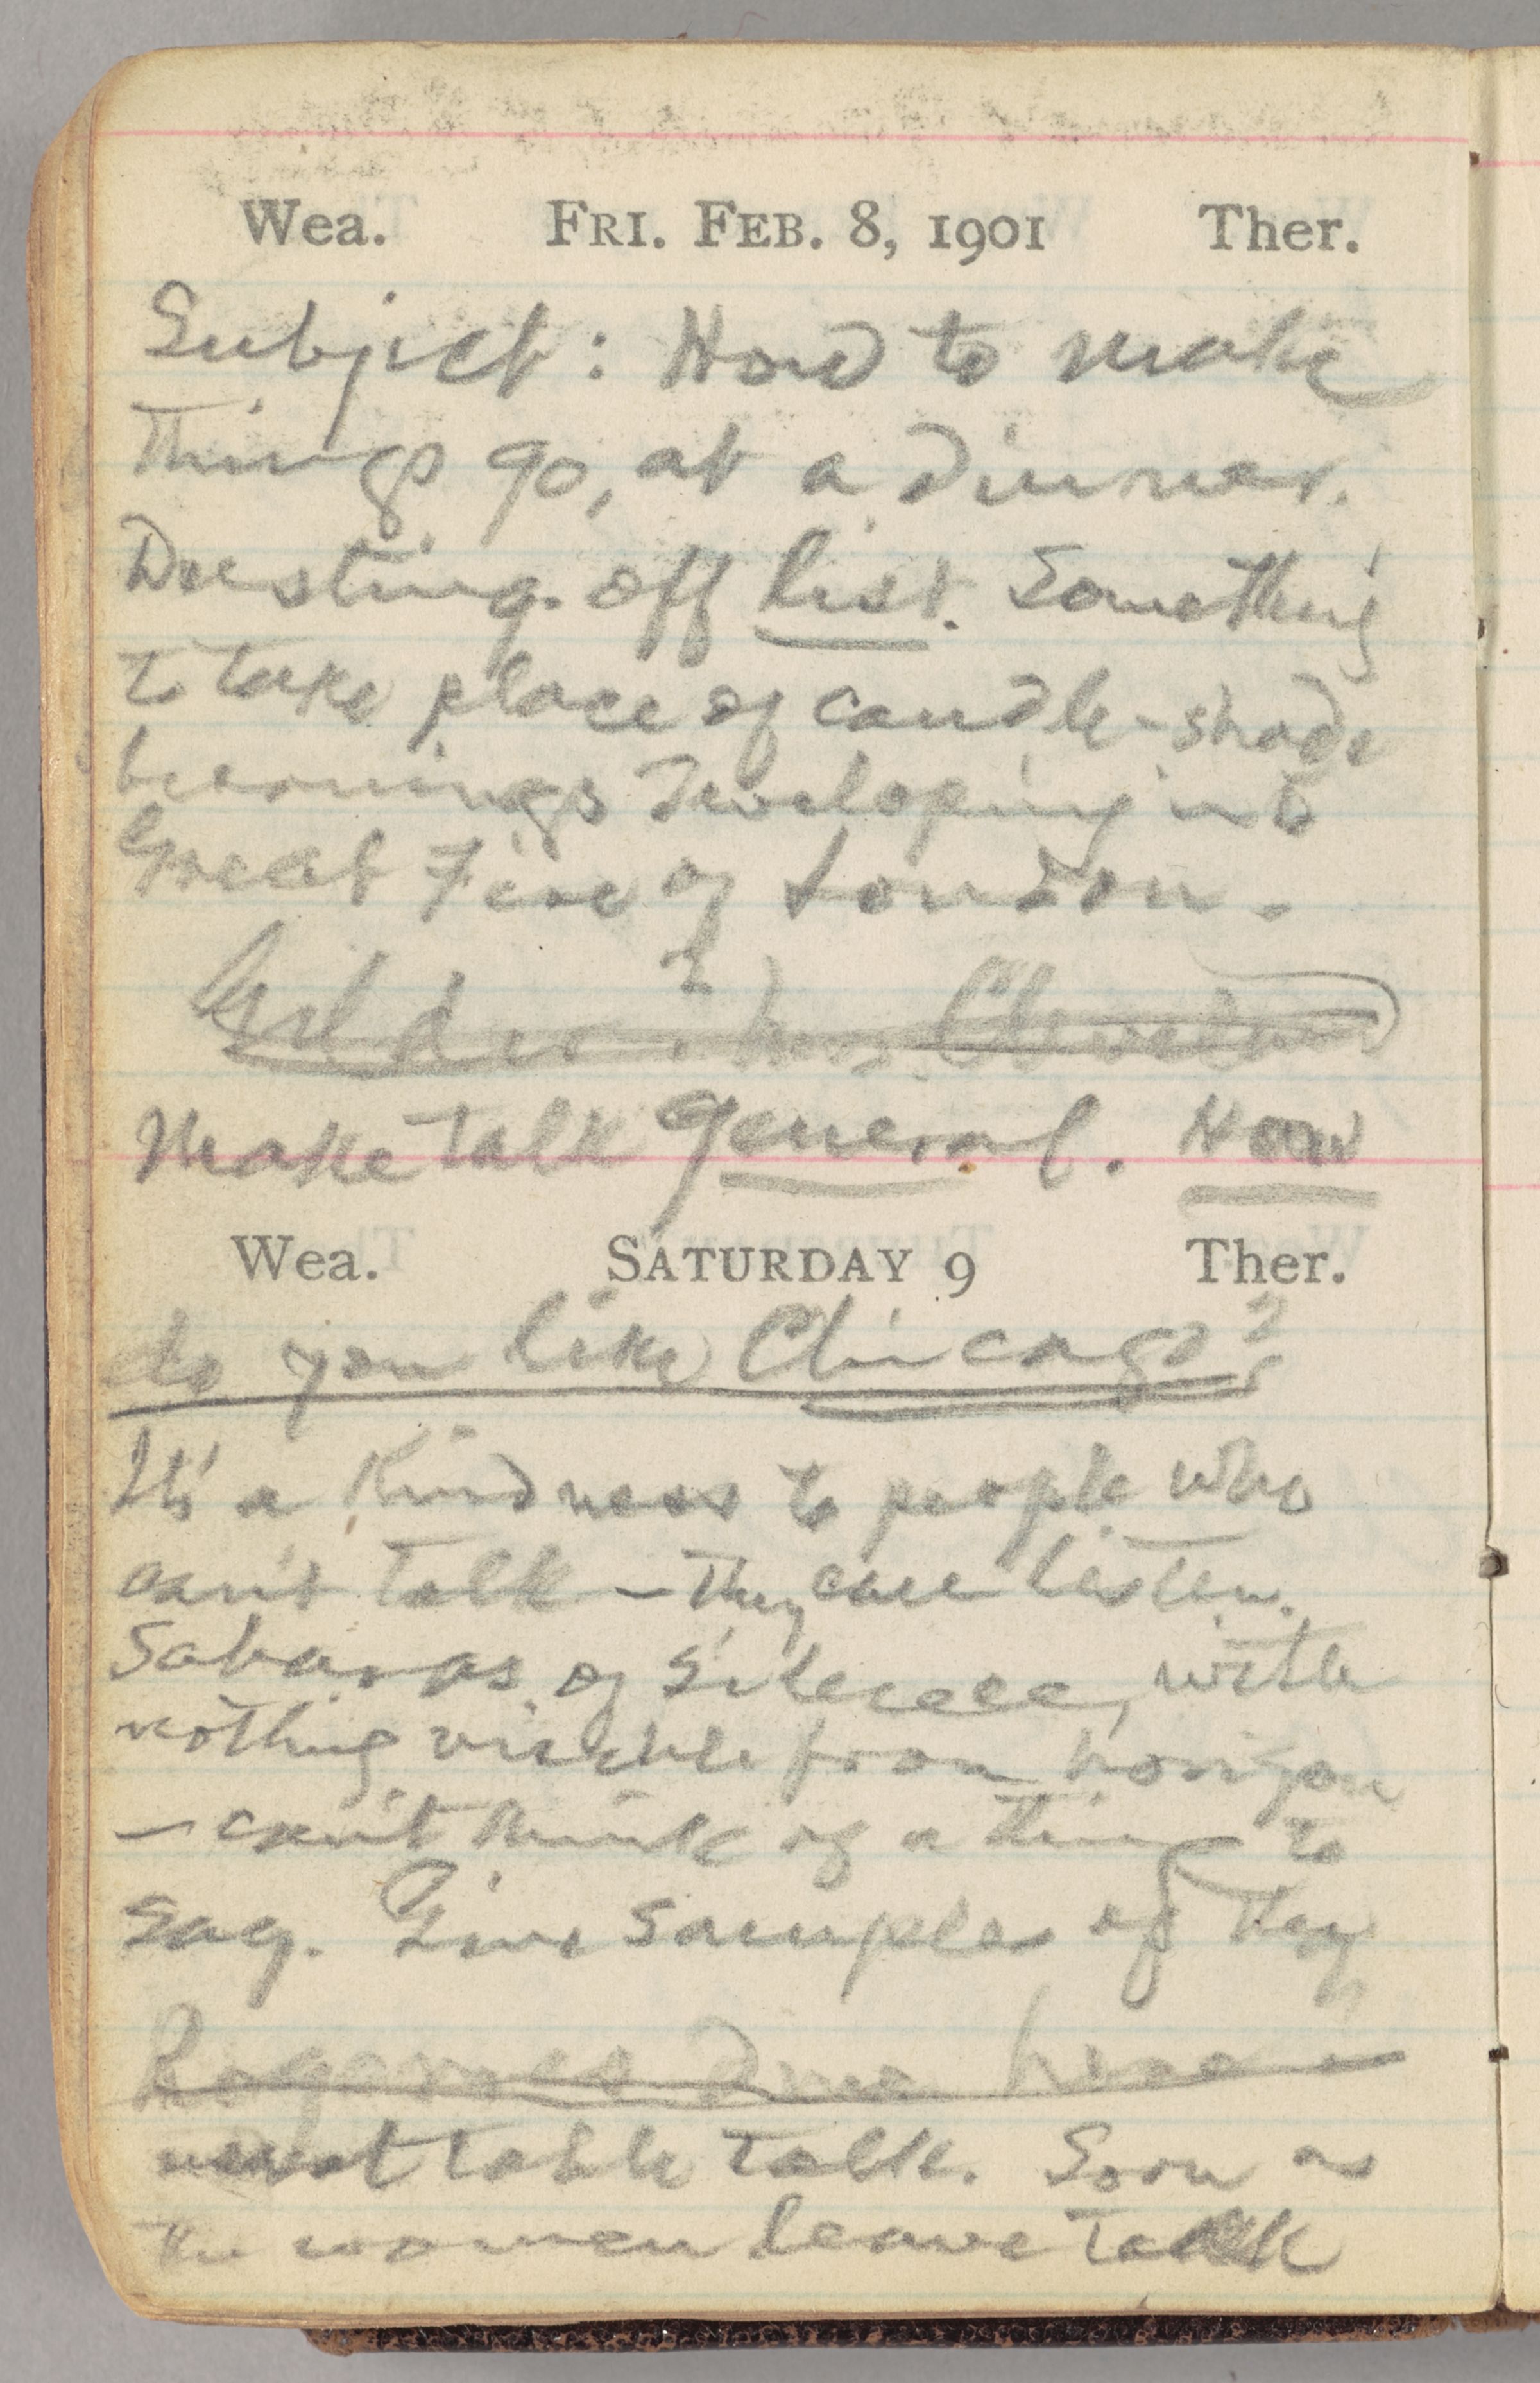 Wea. FRI. FEB. 8, 1901 Ther.
Subject: How to make
things go, at a dinner.
Dusting-off list. Something
to take place of candle-shade
burnings developing into
Great Fire of London.
Gilder & Mrs. Cleveland
Make talk general. How
Wea. SATURDAY 9 Ther.
do you like Chicago?
It's a kindness to people who
can't talk — they can listen.
Saharas of silence, with
nothing visible from horizon
— can't think of a thing to
say. Give samples of they
Rogerses dine here
want table talk. Soon as
the women leave talk